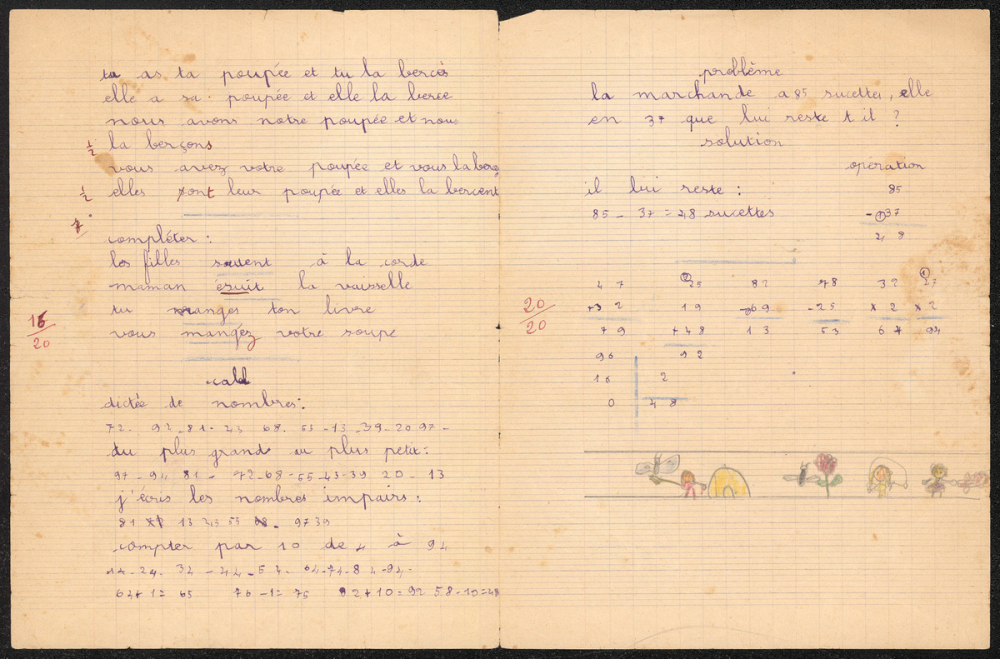 ta as ta poupée et tu la berces
elle a sa poupée et elle la berce
nous avons notre poupée et nous
½ la berçons
vous avez votre poupée et vous la berç
½ elles sont leur poupée et elles la bercent
compléter :
les filles sautent à la corde
maman ésuit la vaisselle
16/20
tu manges ton livre
vous mangéz votre soupe
calcul
dictée de nombres :
72 - 92 - 81 - 43 68 - 55 - 13 - 39 - 20 97 -
du plus grand au plus petit :
97 - 92 81 - 72 - 68 - 55 - 43 - 39 20 - 13
j'écris les nombres impairs :
81 13 43 55 - 97 39
compter par 10 de 4 à 94
14 - 24 - 34 - 44 - 54 - 64 - 74 - 84 - 94 -
64 + 1 = 65 76 - 1 = 75 82 + 10 = 92 58 - 10 = 48
problème
la marchande a 85 sucettes, elle
en 37 que lui reste t il ?
solution
opération
il lui reste : 85
85 - 37 = 48 sucettes - 37
48
20/20
47 25 82 78 32 47
+32 19 -69 -25 x 2 x 2
79 +48 13 53 64 94
96 92
16 2
0 48